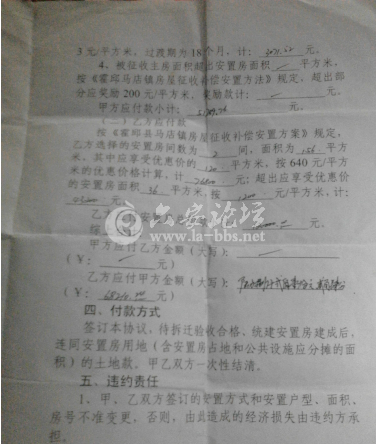 3元/平方米，过渡期为18个月，计： 元。
4、被征收主房面积超出安置房面积 平方米，
按《霍邱马店镇房屋征收补偿安置方法》规定，超出部
分应奖励200元/平方米，奖励款计： 元。
甲方应付款小计： 元。
（二）乙方应付款
按《霍邱县马店镇房屋征收补偿安置方案》规定，
乙方选择的安置房间数为 2 间，面积为 156 平方
米，其中应享受优惠价的 120 平方米，按640元/平方
米的优惠价格计算，计 76800 元；超出应享受优惠价
的安置房面积 36 平方米，按 1200 元/平方米，计：
43200 元。
乙方 元。
综
六安论坛
www.la-bbs.net
甲方应付乙方金额（大写）：
（¥： 元）
乙方应付甲方金额（大写）：
（¥： 元）
四、付款方式
签订本协议，待拆迁验收合格、统建安置房建成后，
连同安置房用地（含安置房占地和公共设施应分摊的面
积）的土地款，甲乙双方一次性结清。
五、违约责任
1、甲、乙双方签订的安置方式和安置户型、面积、
房号不准变更，否则，由此造成的经济损失由违约方承
担。